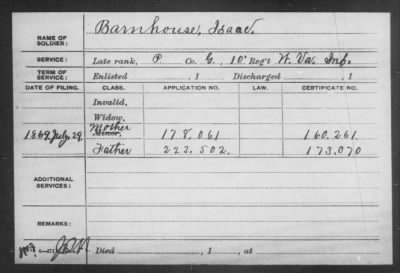 NAME OF SOLDIER: Barnhouse, Isaac.
SERVICE: Late rank, P Co. G, 10" Reg't W. Va. Inf.
TERM OF SERVICE: Enlisted , 1 Discharged , 1
DATE OF FILING. CLASS. APPLICATION NO. LAW. CERTIFICATE NO.
Invalid,
Widow,
1869, July 29. Minor, Mother 178.061 160.261.
Father 223.502. 173.070
ADDITIONAL SERVICES:
REMARKS:
Died , 1 , at